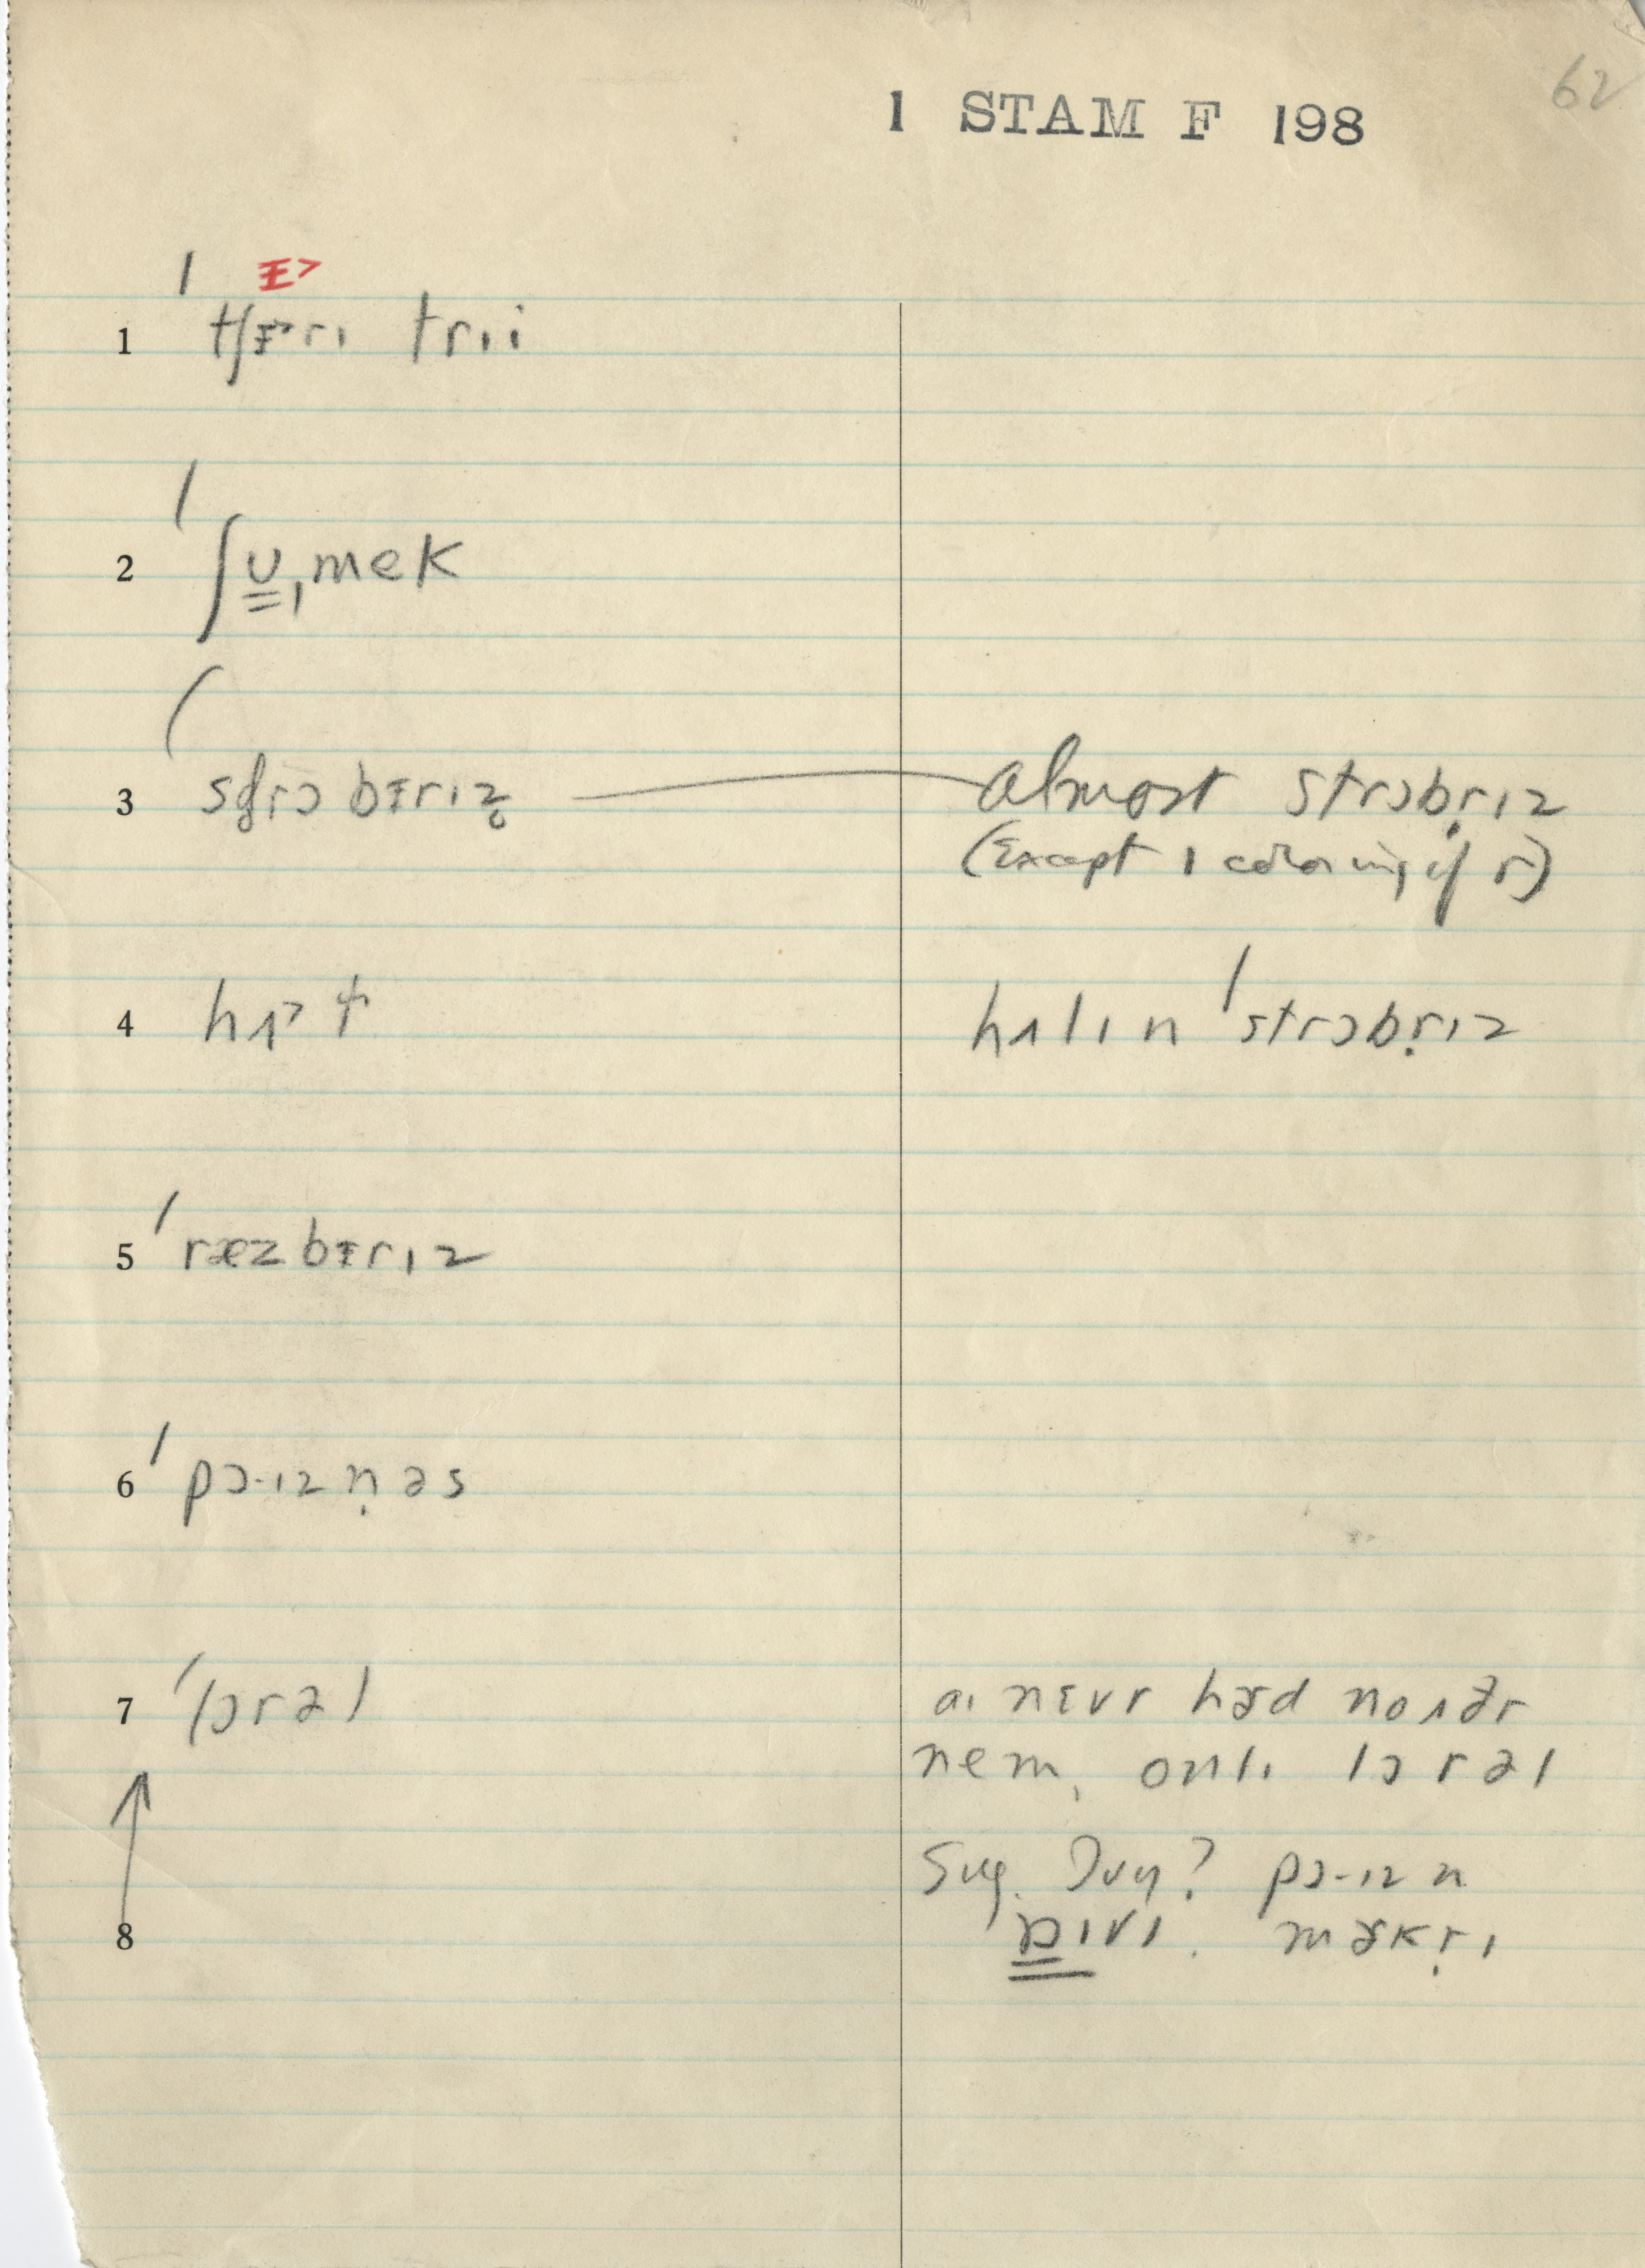 62
1 STAM F 198
ᵻ˃
1 ˈtʃᵻ˃rɪ trɪi
2 ˈʃʊ̳ˌmek
3 ˈsd̥rɔbᵻrɪz̥ almost strɔbr̩ɪz
(Except ɪ coloring of r)
4 hʌ˃ɫ hʌlɪn ˈstrɔbr̩ɪz
5 ˈræzbᵻrɪz
6 ˈpɔ·ɪzn̩əs
7 ˈlɔrəl aɪ nɛvr hæd noʌðr
nem, onlɪ lɔrəl
8 Sug. Ivy? pɔ·ɪzn
ɒ̳ɪvɪ. mɚkr̩ɪ